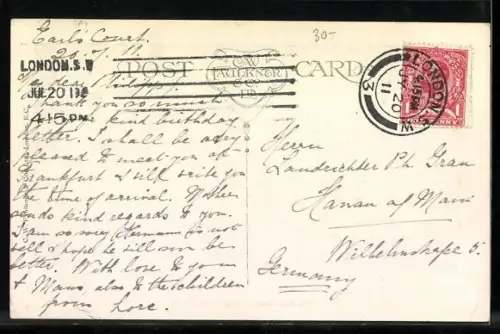 30-
Earl's Court.
20.7.11.
LONDON.S.W
JUL 20 11
4.15 PM
POST CARD
C.W. FAULKNER & CO LTD
LONDON.S.W
4.15 PM
JY 20
11
3
My dear Philipp,
Thank you so much
kind birthday
letter. I shall be very
pleased to meet you at
Frankfurt & will write you
the time of arrival. Mother
sends kind regards to you.
I am so sorry Hermann is not
well & hope he will soon be
better. With love to you
& Mama, also to the children
from Lore.
Herrn
Landrichter Ph. Grau
Hanau a/ Main
Wilhelmstrasse 5.
Germany